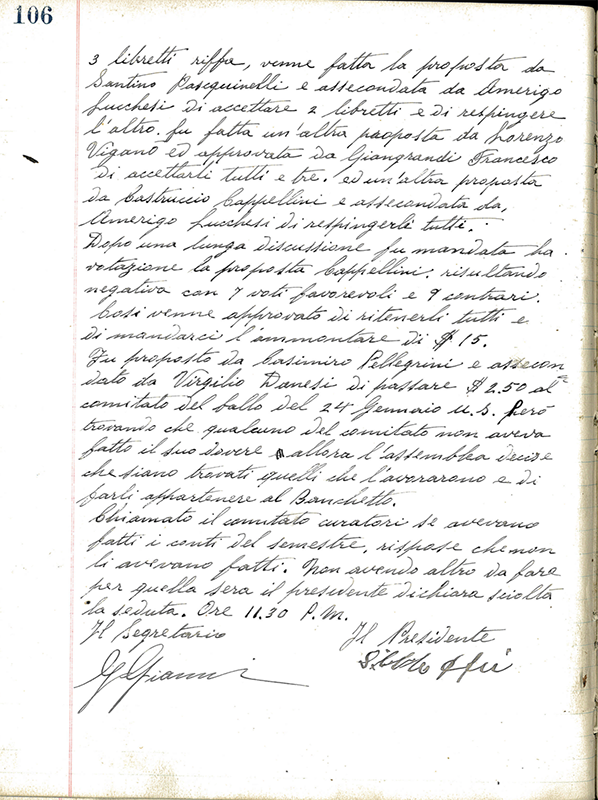 106
3 libretti riffa, venne fatta la proposta da
Santino Pasequinelli e assecondata da Amerigo
Lucchesi di accettare 2 libretti e di respingere
l'altro. fu fatta un'altra proposta da Lorenzo
Viganò ed approvata da Giangrandi Francesco
di accettarli tutti e tre. ed un'altra proposta
da Castruccio Cappellini e assecondata da,
Amerigo Lucchesi di respingerli tutti.
Dopo una lunga discussione fu mandata ha
votazione la proposta Cappellini. risultando
negativa con 7 voti favorevoli e 9 contrari.
Cosi venne approvato di ritenerli tutti e
di mandarci l'ammontare di $ 15.
Fu proposto da Casimiro Pellegrini e assecon=
dato da Virgilio Danesi di passare $ 2.50 al
comitato del ballo del 24 Gennaio u.s. però
trovando che qualcuno del comitato non aveva
fatto il suo dovere allora l'assemblea decise
che siano trovati quelli che l'avorarono e di
farli appartenere al Banchetto.
Chiamato il comitato curatori se avevano
fatti i conti del semestre, rispose che non
li avevano fatti. Non avendo altro da fare
per quella sera il presidente dichiara sciolta
la seduta. Ore 11.30 P.M.
Il Segretario Il Presidente
G Gianni